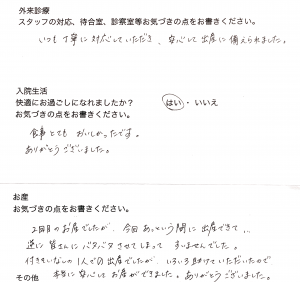 外来診療
スタッフの対応、待合室、診察室等お気づきの点をお書きください。
いつも丁寧に対応していただき、安心して出産に備えられました。
入院生活
快適にお過ごしになれましたか? はい・いいえ
お気づきの点をお書きください。
食事とてもおいしかったです。
ありがとうございました。
お産
お気づきの点をお書きください。
2回目のお産でしたが、今回あっという間に出産できて、、
逆に皆さんにバタバタさせてしまってすいませんでした。
付きそいなしの1人での出産でしたが、いろいろ助けていただいたので
その他 本当に安心してお産ができました。ありがとうございました。